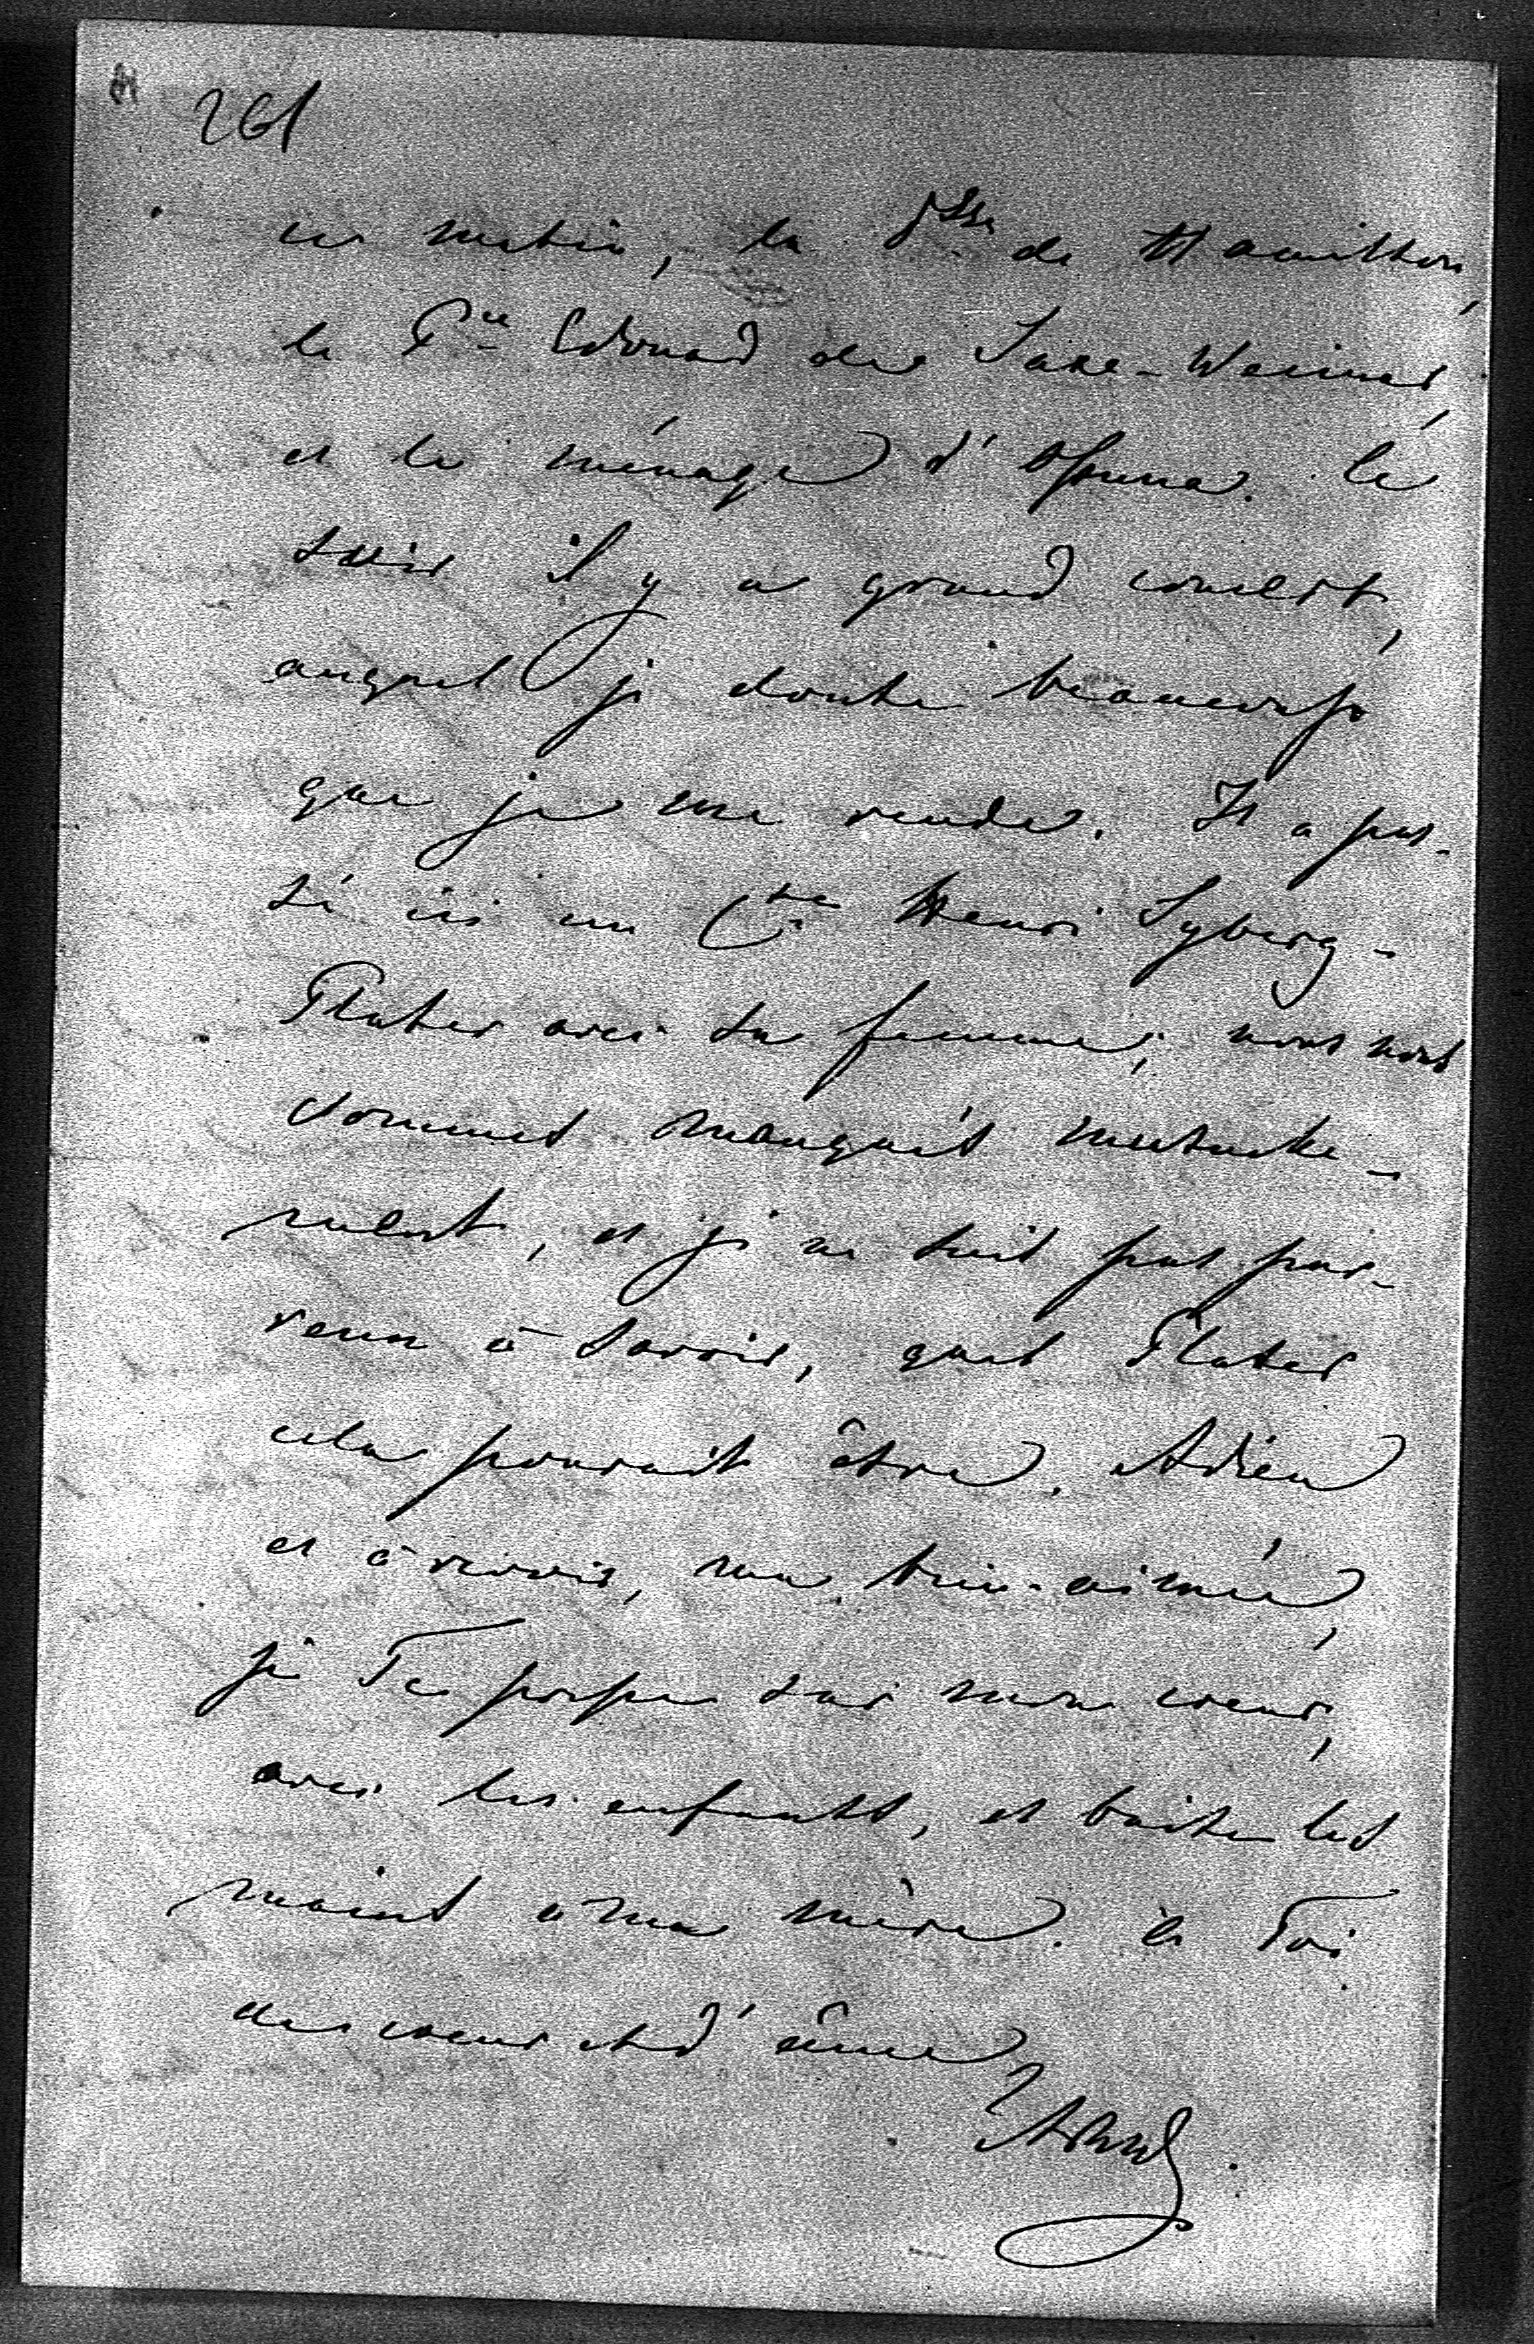 261
ce matin, la Dsse de Hamilton,
le Pce Edouard de Saxe-Weimar,
et le ménage d'Ossuna. Ce
soir il y a grand concert,
auquel je doute beaucoup
que je me rende. Il a pas-
sé ici un Cte Henri Syberg-
Plater avec sa femme; nous nous
sommes manqués mutuelle-
ment, et je ne suis pas par-
venu à savoir, quel Plater
cela pourrait être. Adieu
et à revoir, ma bien-aimée,
je Te presse sur mon coeur,
avec les enfants, et baise les
mains à ma mère. à Toi
de coeur et d'âme